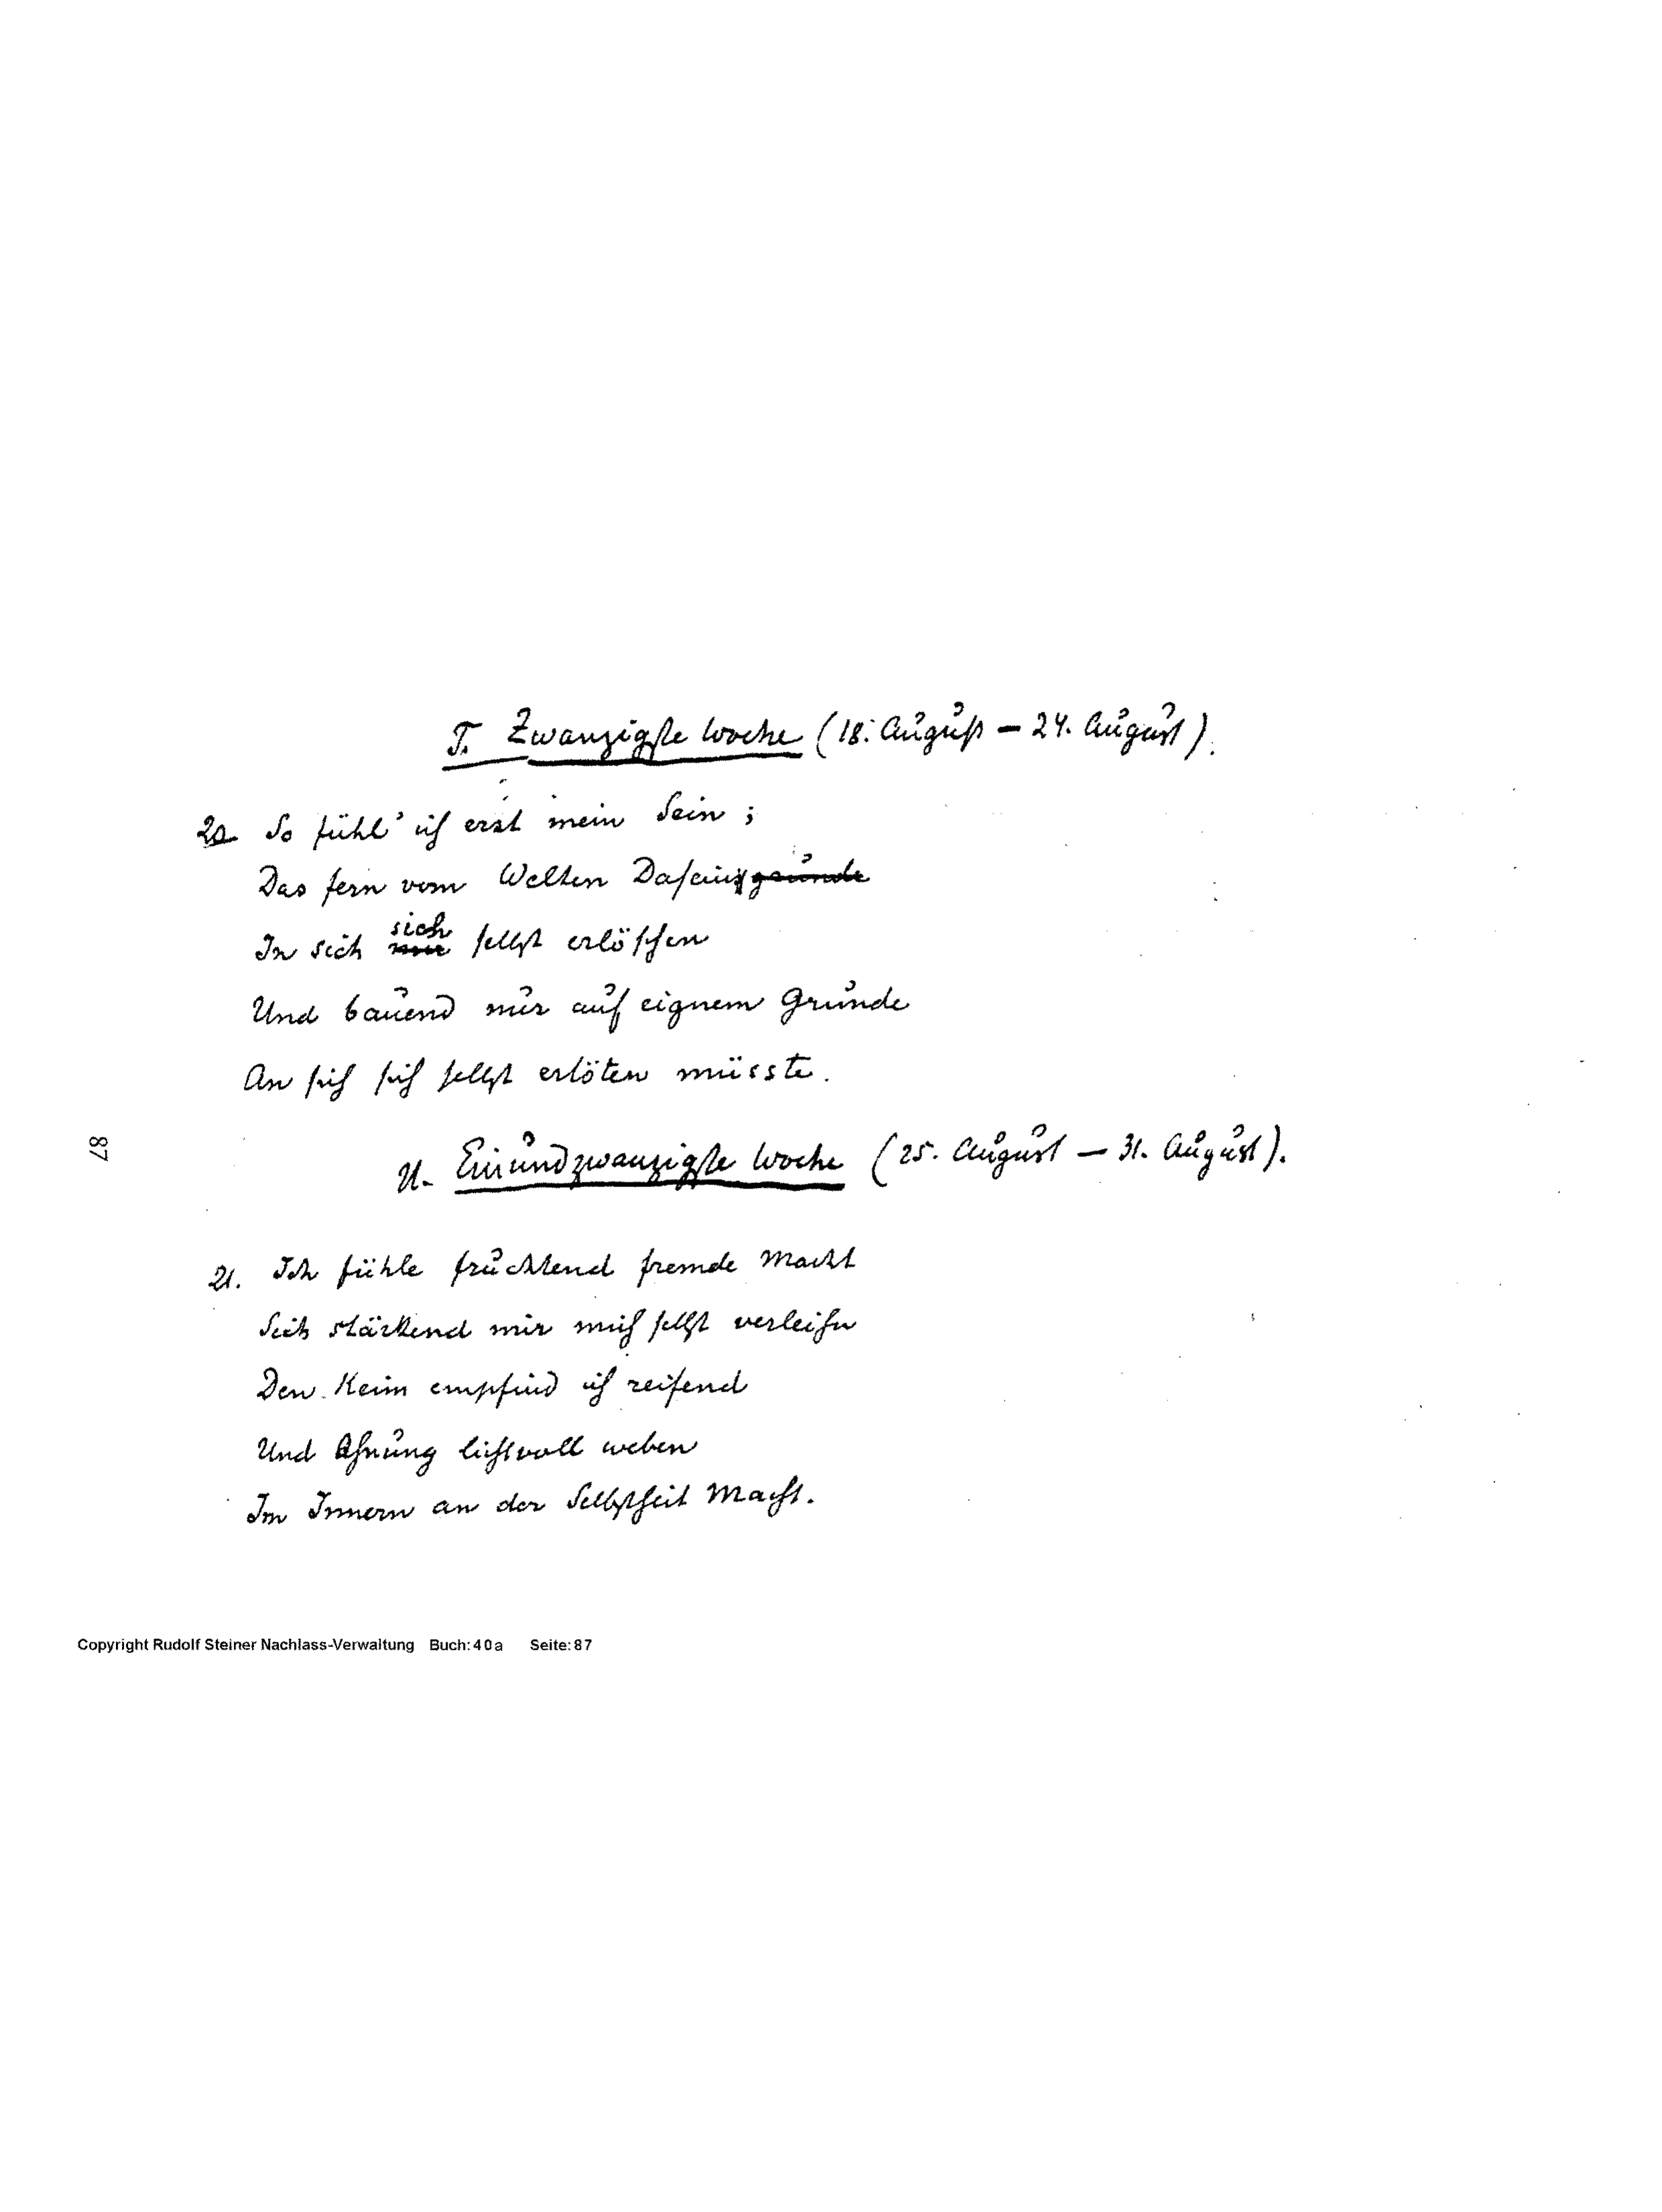 T. Zwanzigste Woche (18. August – 24. August).
20. So fühl' ich erst mein Sein;
Das fern vom Welten Daseinsgründe
In sich sich nur selbst erlöschen
Und bauend nur auf eignem Grunde
An sich sich selbst ertöten müsste.
U. Einundzwanzigste Woche (25. August – 31. August).
21. Ich fühle fruchtend fremde Macht
Sich stärkend mir mich selbst verleihn
Den Keim empfind ich reifend
Und Ahnung lichtvoll weben
Im Innern an der Selbstheit Macht.
87
Copyright Rudolf Steiner Nachlass-Verwaltung Buch: 40a Seite: 87